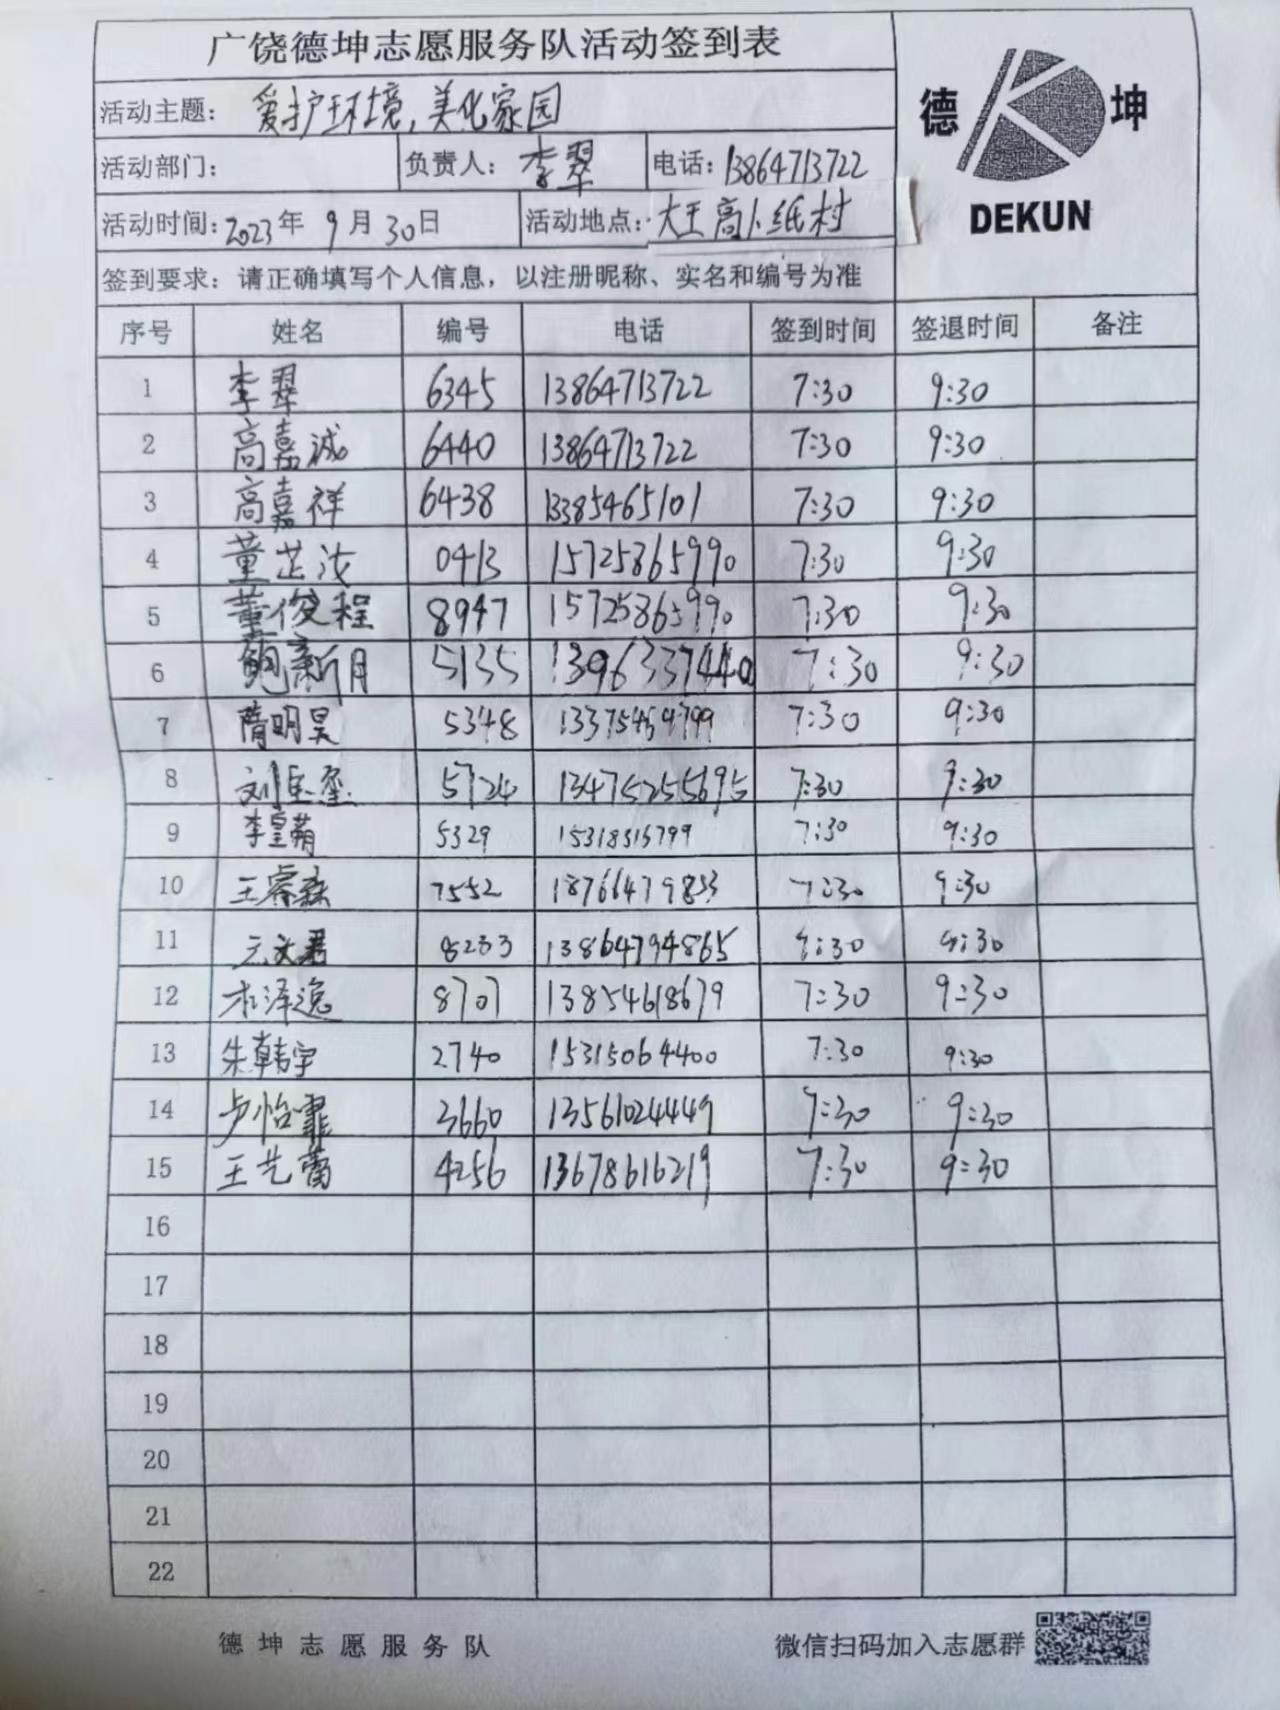 广饶德坤志愿服务队活动签到表
德 坤
DEKUN
活动主题: 爱护环境,美化家园
活动部门: 负责人: 李翠 电话: 13864713722
活动时间: 2023年 9月 30日 活动地点: 大王高卜纸村
签到要求: 请正确填写个人信息, 以注册昵称、实名和编号为准
序号 姓名 编号 电话 签到时间 签退时间 备注
1 李翠 6345 13864713722 7:30 9:30
2 高嘉诚 6440 13864713722 7:30 9:30
3 高嘉祥 6438 13385465101 7:30 9:30
4 董芷汝 0413 15725865990 7:30 9:30
5 董俊程 8947 15725865990 7:30 9:30
6 鲍新月 5135 13963374440 7:30 9:30
7 隋明昊 5348 13375469799 7:30 9:30
8 5724 7:30 9:30
9 5329 15318315799 7:30 9:30
10 7552 18766479853 7:30 9:30
11 8233 13864794865
12 8707 13854618679 7:30 9:30
13 朱韩宇 2740 15315064400 7:30 9:30
14 卢怡霏 3660 13561024449 7:30 9:30
15 王艺蕾 4256 13678616219 7:30 9:30
16
17
18
19
20
21
22
德坤志愿服务队 微信扫码加入志愿群